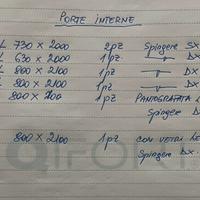 PORTE INTERNE
730 x 2000 2pz Spingere SX
630 x 2000 1pz DX
800 x 2100 1pz DX
800 x 2100 1pz DX
800 x 2100 1pz PANTOGRAFATA
Spingere DX
800 x 2100 1pz CON VETRI
Spingere DX